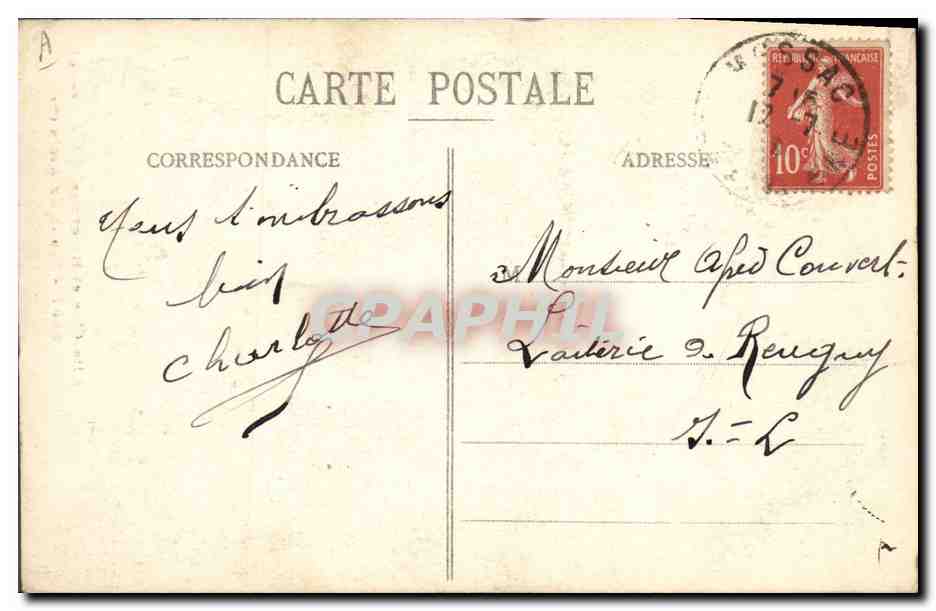 A
CARTE POSTALE
CORRESPONDANCE
ADRESSE
RÉPUBLIQUE FRANÇAISE
10c
POSTES
7 15
12 - 7
Nous t'embrassons
bien
Charlotte
Monsieur Couvert
Laiterie de Reugny
I. = L
CPAPHIL